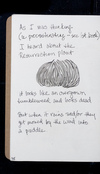 As I was thinking
I heard about the
Resurrection Plant
it looks like an overgrown
tumbleweed and looks dead
But when it rains and/or they
get moved by the wind into
a puddle